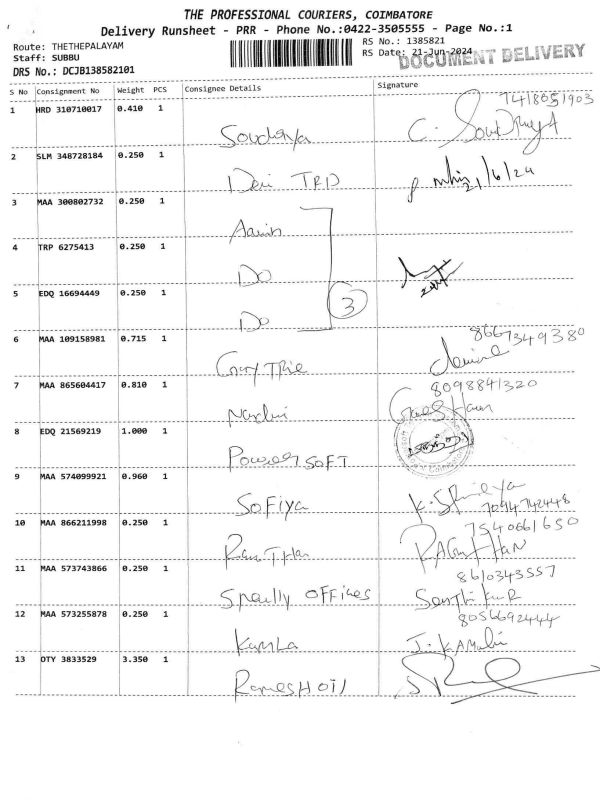 THE PROFESSIONAL COURIERS, COIMBATORE
Delivery Runsheet - PRR - Phone No.:0422-3505555 - Page No.:1
Route: THETHEPALAYAM
RS No.: 1385821
Staff: SUBBU
RS Date: 21-Jun-2024
DOCUMENT DELIVERY
DRS No.: DCJB138582101
S No Consignment No Weight PCS Consignee Details Signature
7418051903
1 HRD 310710017 0.410 1
2 SLM 348728184 0.250 1 TRD 21/6/24
3 MAA 300802732 0.250 1
4 TRP 6275413 0.250 1 DO
5 EDQ 16694449 0.250 1 DO 3
8667349380
6 MAA 109158981 0.715 1
8098841320
7 MAA 865604417 0.810 1
8 EDQ 21569219 1.000 1 Power SOFT
9 MAA 574099921 0.960 1 SOFIYA
7094742448
7540661650
10 MAA 866211998 0.250 1
8610343557
11 MAA 573743866 0.250 1 OFFICES
8056692444
12 MAA 573255878 0.250 1
13 OTY 3833529 3.350 1 RAMESH